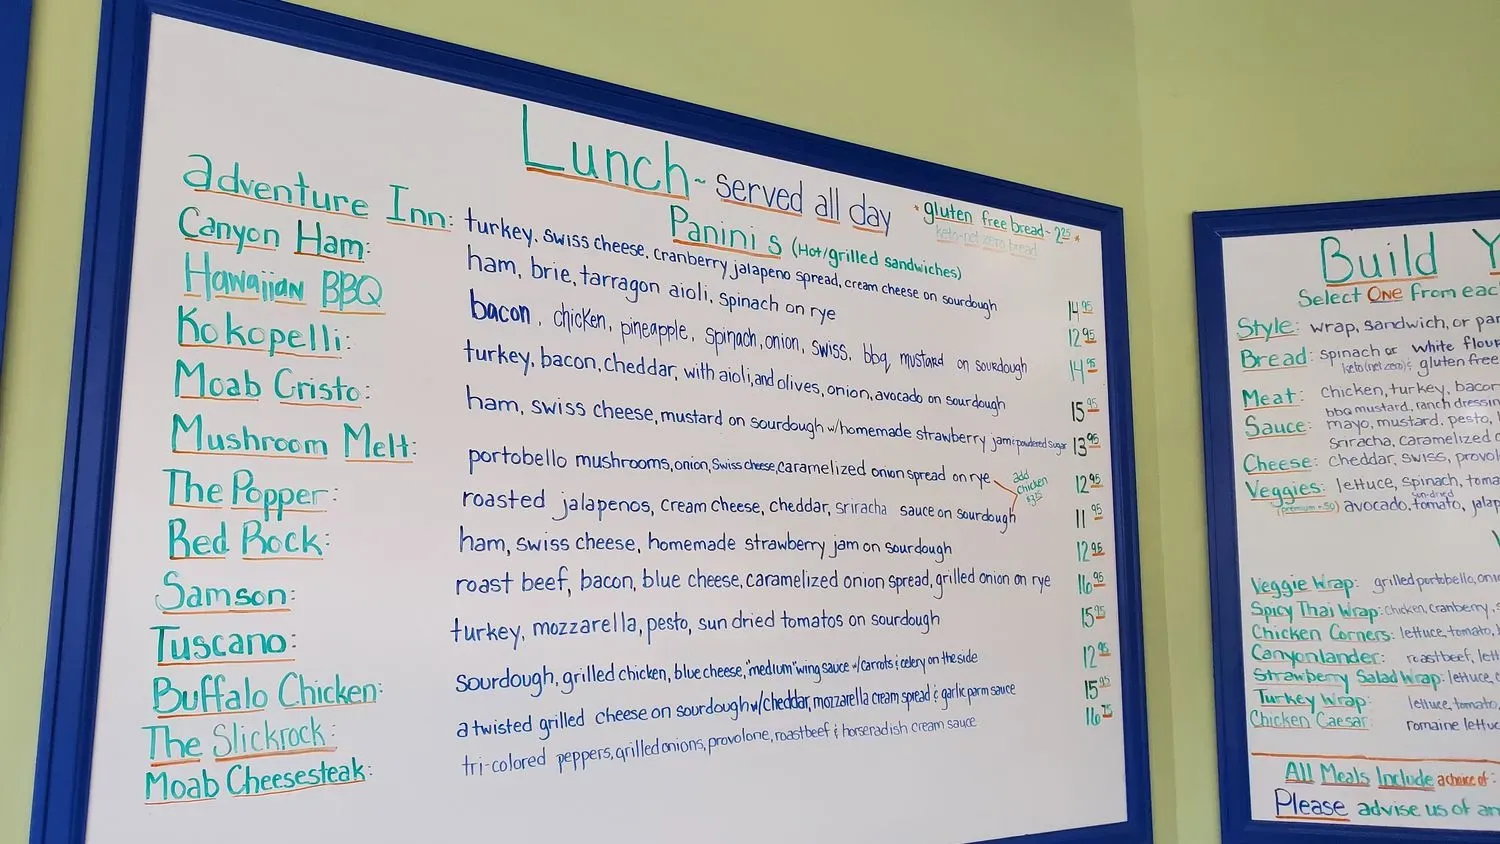 Lunch ~ served all day
* gluten free bread ~ 2.25 *
keto-net zero bread
Paninis (Hot/grilled sandwiches)
adventure Inn: turkey, swiss cheese, cranberry jalapeno spread, cream cheese on sourdough 14 95
Canyon Ham: ham, brie, tarragon aioli, spinach on rye 12 95
Hawaiian BBQ bacon, chicken, pineapple, spinach, onion, swiss, bbq, mustard on sourdough 14 95
Kokopelli: turkey, bacon, cheddar, with aioli, and olives, onion, avocado on sourdough 15 95
Moab Cristo: ham, swiss cheese, mustard on sourdough w/homemade strawberry jam & powdered sugar 13 95
Mushroom Melt: portobello mushrooms, onion, swiss cheese, caramelized onion spread on rye 12 95
add chicken
The Popper: roasted jalapenos, cream cheese, cheddar, sriracha sauce on sourdough 11 95
Red Rock: ham, swiss cheese, homemade strawberry jam on sourdough 12 95
Samson: roast beef, bacon, blue cheese, caramelized onion spread, grilled onion on rye 16 95
Tuscano: turkey, mozzarella, pesto, sun dried tomatos on sourdough 15 95
Buffalo Chicken: sourdough, grilled chicken, blue cheese, "medium" wing sauce w/ carrots & celery on the side 12 95
The Slickrock: a twisted grilled cheese on sourdough w/cheddar, mozzarella cream spread & garlic parm sauce 15 95
Moab Cheesesteak: tri-colored peppers, grilled onions, provolone, roastbeef & horseradish cream sauce 16 75
Build Y
Select ONE from eac
Style: wrap, sandwich, or pa
Bread: spinach or white flour
keto (net zero) & gluten free
Meat: chicken, turkey, bacon
bbq mustard, ranch dressin
Sauce: mayo, mustard, pesto,
sriracha, caramelized
Cheese: cheddar, swiss, provol
Veggies: lettuce, spinach, toma
(premium + .50) avocado, sun-dried tomato, jalap
Veggie Wrap: grilled portobello, oni
Spicy Thai Wrap: chicken, cranberry, s
Chicken Corners: lettuce, tomato,
Canyonlander: roastbeef, lett
Strawberry Salad Wrap: lettuce,
Turkey Wrap: lettuce, tomato,
Chicken Caesar: romaine lettuc
All Meals Include a choice of:
Please advise us of an